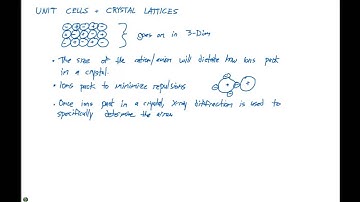 UNIT CELLS + CRYSTAL LATTICES
goes on in 3-Dim
• The size of the cation/anion will dictate how ions pack
in a crystal.
• Ions pack to minimize repulsions
• Once ions pack in a crystal, X-ray diffraction is used to
specifically determine the arran